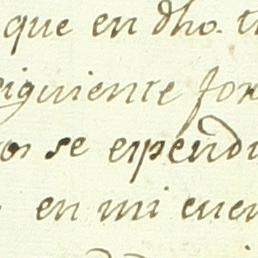 que en dho. t
siguiente for
os se expendi
en mi cuen